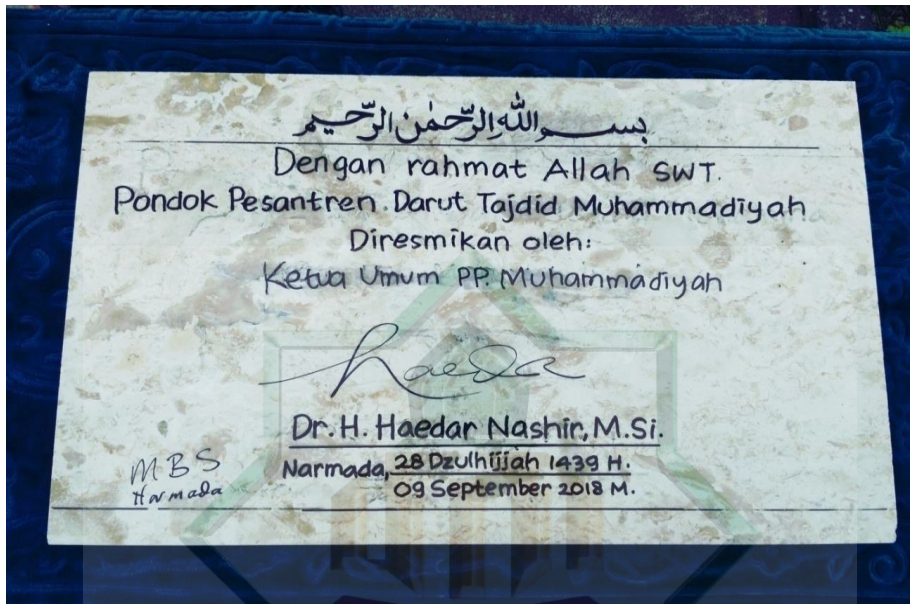 بسم الله الرحمن الرحيم
Dengan rahmat Allah SWT.
Pondok Pesantren Darut Tajdid Muhammadiyah
Diresmikan oleh:
Ketua Umum PP. Muhammadiyah
Haeda
Dr. H. Haedar Nashir, M.Si.
Narmada, 28 Dzulhijjah 1439 H.
09 September 2018 M.
MBS
Narmada